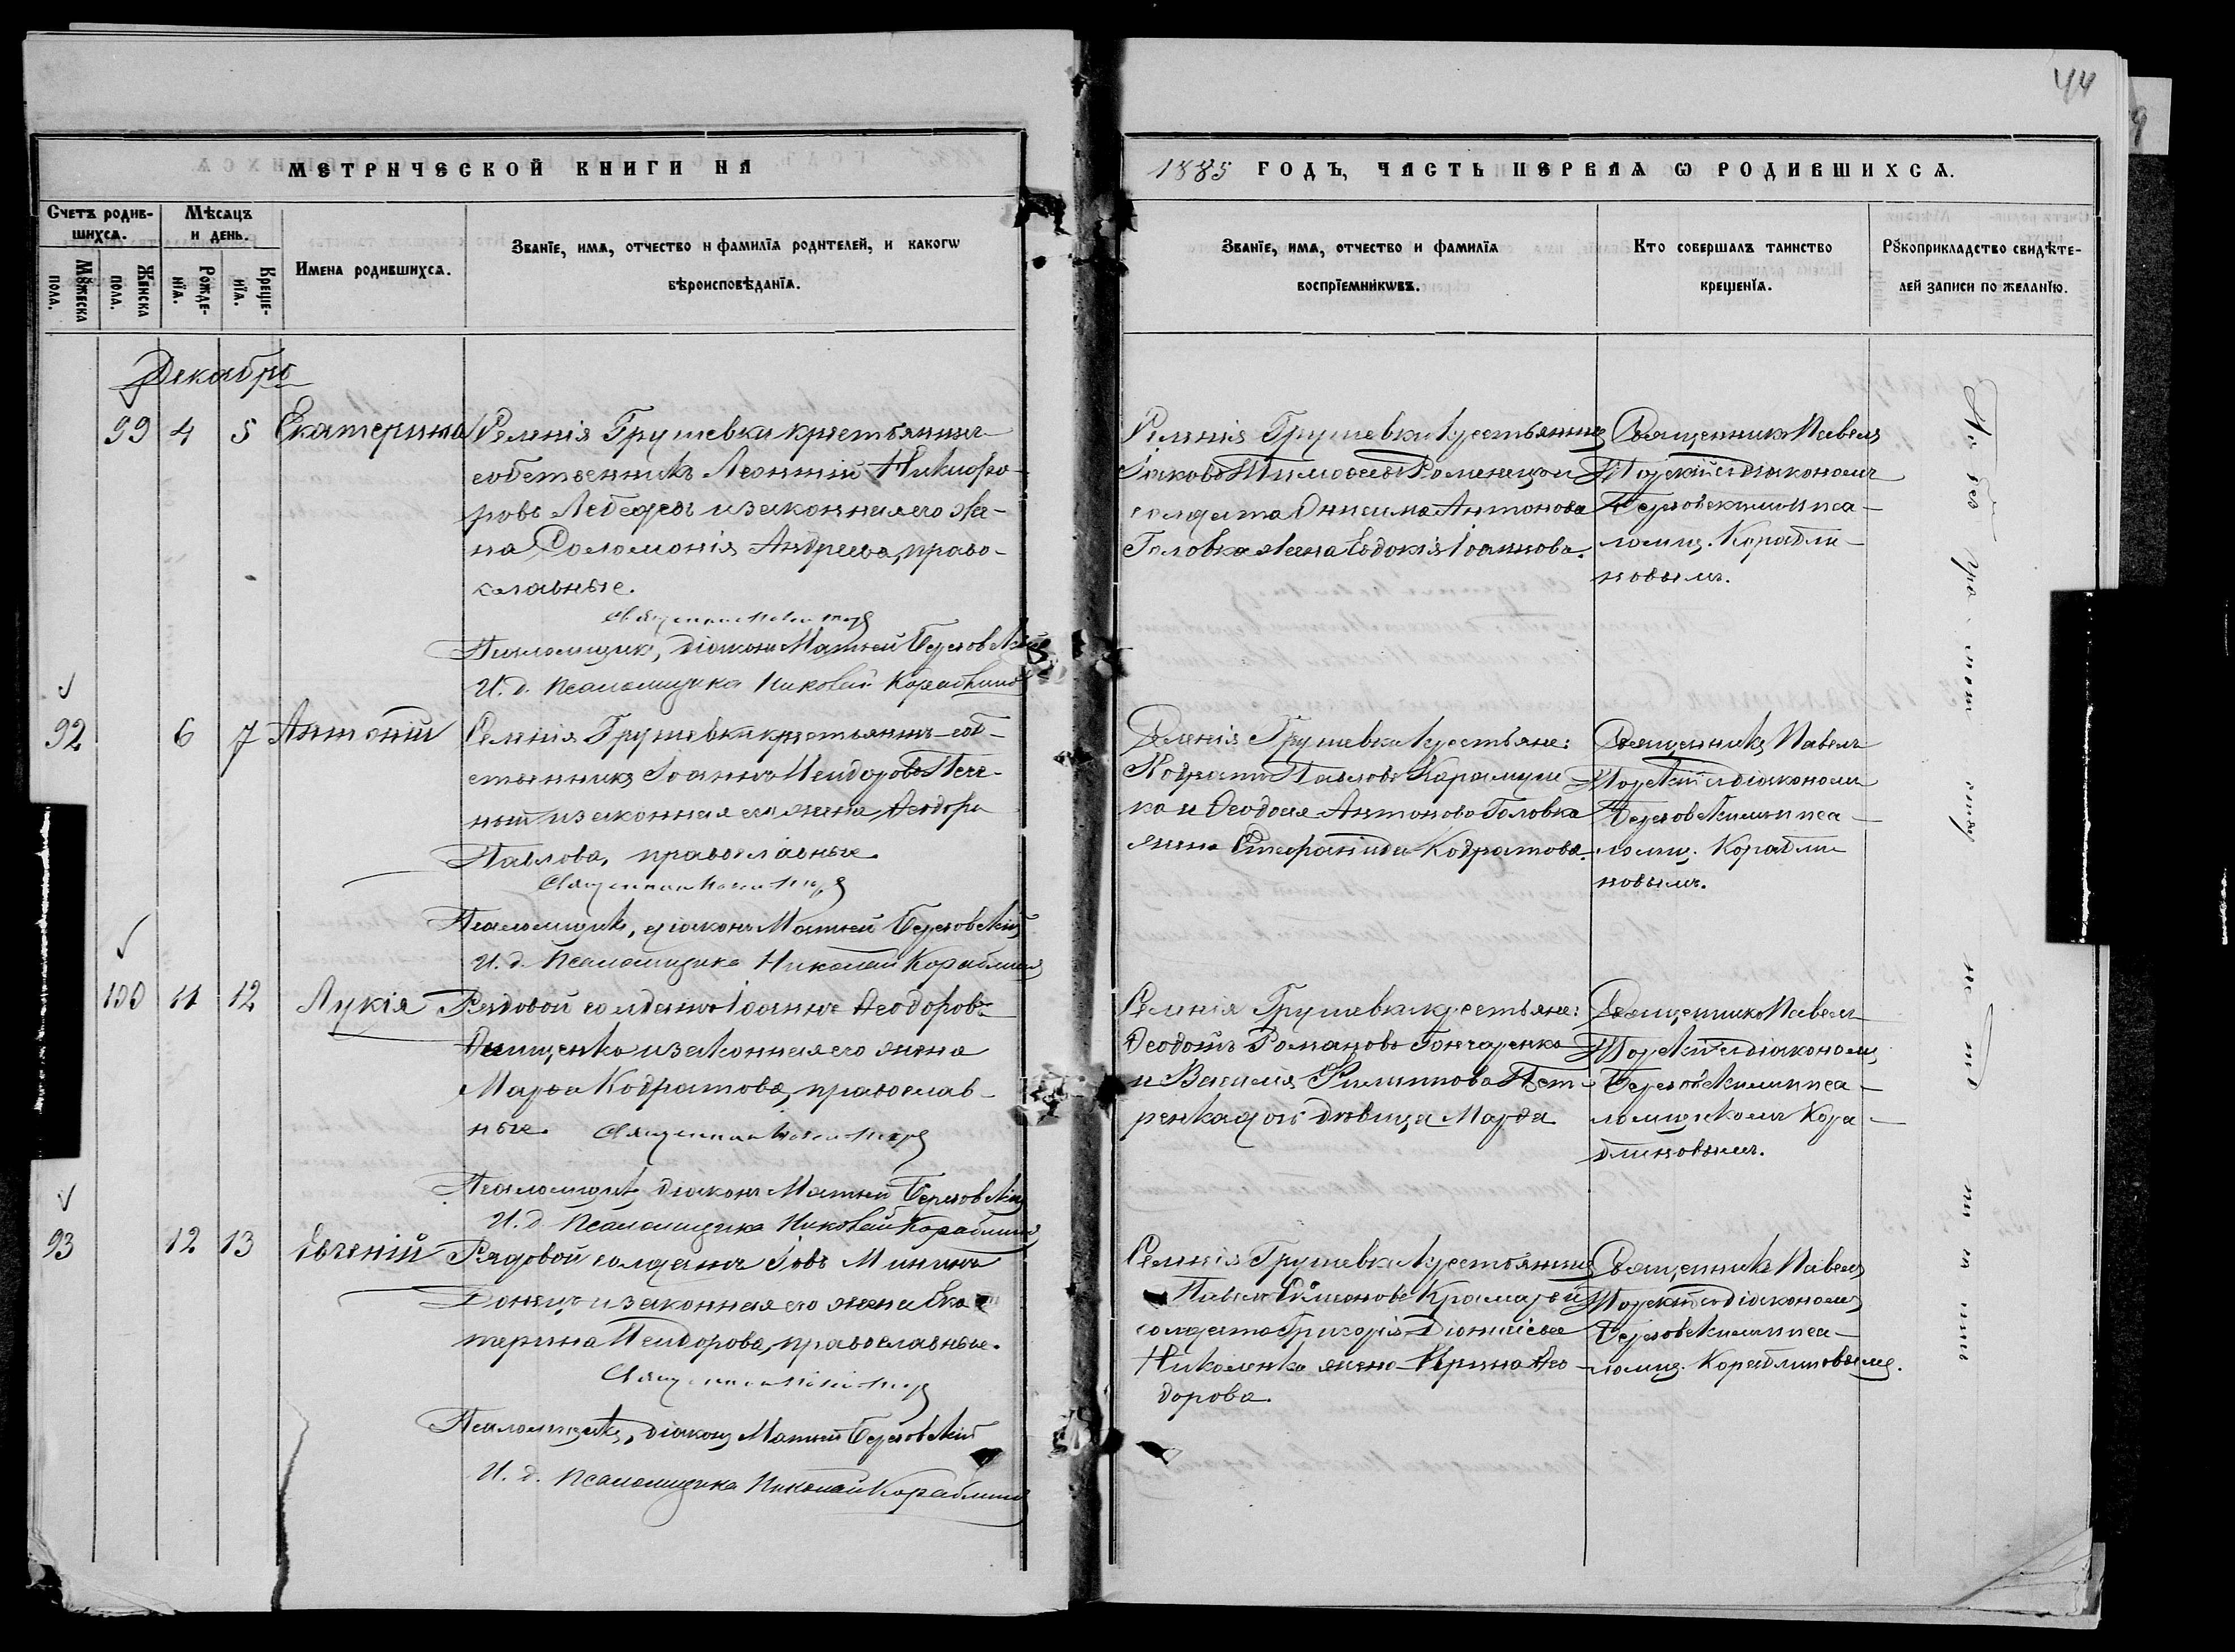 44
МЕТРИЧЕСКОЙ КНИГИ НА
1885 ГОДЪ, ЧАСТЬ ПЕРВАЯ Ѡ РОДИВШИХСѦ.
Счетъ родив-
шихсѧ.
Мѣсѧцъ
и день.
Мꙋжеска
пола.
Женска
пола.
Рожде-
нїѧ.
Креще-
нїѧ.
Имена родившихсѧ.
Званїе, имѧ, отчество и фамилїѧ родителей, и какогѡ
вѣроисповѣданїѧ.
Званїе, имѧ, отчество и фамилїѧ
воспрїемникѡвъ.
Кто совершалъ таинство
крещенїѧ.
Рꙋкоприкладство свидѣте-
лей записи по желанїю.
Декабрь
99 4 5 Екатерина
Селенія Грушевки крестьянинъ
собственникъ Леонтій Никифо-
ровъ Лебедевъ и законная его же-
на Соломонія Андреева, право-
славные.
Священникъ
Псаломщик, діаконъ Матѳей Березовскій
И. д. псаломщика Николай Кораблиновъ
Селенія Грушевки крестьянинъ
Іаковъ Тимоѳеевъ и
солдата Онисима Антонова
Головка жена Евдокія Іоаннова.
Священникъ Павелъ
съ діакономъ
Березовскимъ и пса-
ломщ. Корабли-
новымъ.
92 6 7 Антоній
Селенія Грушевки крестьянинъ-соб-
ственникъ Іоаннъ
и законная его жена Ѳеодора
Павлова, православные.
Священникъ
Псаломщикъ, діаконъ Матѳей Березовскій
И. д. псаломщика Николай Кораблиновъ
Селенія Грушевки крестьяне:
Кодратъ Павловъ
ка и Ѳеодосія Антонова Головка
жена Стефанида Кодратова.
Священникъ Павелъ
съ діакономъ
Березовскимъ и пса-
ломщ. Корабли-
новымъ.
100 11 12 Лукія
Рядовой солдатъ Іоаннъ Ѳеодоровъ
и законная его жена
Марѳа Кодратова, православ-
ные. Священникъ
Псаломщикъ, діаконъ Матѳей Березовскій
И. д. псаломщика Николай Кораблиновъ
Селенія Грушевки крестьяне:
Ѳеодотъ Романовъ Гончаренко
и Василія Филиппова Пет-
ренка дочь девица Марѳа
Священникъ Павелъ
съ діакономъ
Березовскимъ и пса-
ломщикомъ Кора-
блиновымъ.
93 12 13 Евгеній
Рядовой солдатъ Іовъ Мининъ
Донецъ и законная его жена Ека-
терина православные.
Священникъ
Псаломщикъ, діаконъ Матѳей Березовскій
И. д. псаломщика Николай Кораблиновъ
Селенія Грушевки крестьянинъ
Павелъ Симоновъ Крамарь и
солдата Григорія Діонисіева
Николенка жена Ирина Ѳео-
дорова.
Священникъ Павелъ
съ діакономъ
Березовскимъ и пса-
ломщ. Кораблиновымъ.